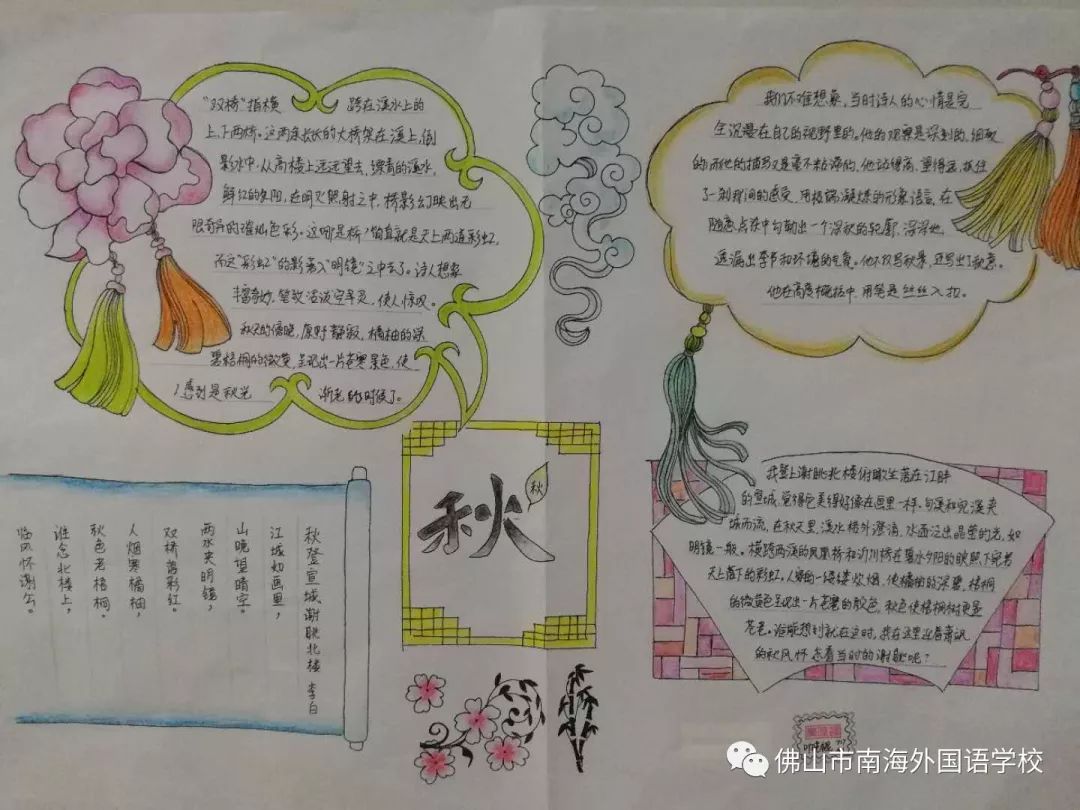 "双桥"指横 跨在溪水上的
上、下两桥。这两座长长的大桥架在溪上,倒
影水中,从高楼上远远望去,缥青的溪水,
鲜红的夕阳,在明灭照射之中,桥影幻映出无
限奇异的璀灿色彩。这哪是桥?简直就是天上两道彩虹,
而这"彩虹"的影落入"明镜"之中去了。诗人想象
丰富奇妙,笔致活泼空灵,使人惊叹。
秋天的傍晚,原野静寂,橘柚的深
碧梧桐的微黄,呈现出一片苍寒景色,使
人感到是秋光 渐老的时候了。
我们不难想象,当时诗人的心情是完
全沉浸在自己的视野里的,他的观察是深刻的,细致
的;而他的描写又是毫不粘滞的。他站得高,望得远,抓住
了一刹那间的感受,用极端凝炼的形象语言,在
随意点染中勾勒出一个深秋的轮廓,深深地
透漏出季节和环境的气氛。他不仅写秋景,还写出了秋意。
他在高度概括中,用笔是丝丝入扣。
秋登宣城谢眺北楼 李白
江城如画里,
山晚望晴空。
两水夹明镜,
双桥落彩虹。
人烟寒橘柚,
秋色老梧桐。
谁念北楼上,
临风怀谢公。
秋
秋
我登上谢眺北楼俯瞰坐落在江畔
的宣城,觉得它美得好像在画里一样。句溪和宛溪夹
城而流,在秋天里,溪水格外澄清,水面泛出晶莹的光,如
明镜一般。横跨两溪的凤凰桥和济川桥在碧水夕阳的映照下宛若
天上落下的彩虹,人家的一缕缕炊烟,使橘柚的深碧、梧桐
的微黄色呈现出一片苍寒的颜色,秋色使梧桐树更显
苍老。谁能想到就在这时,我在这里迎着萧飒
的秋风怀念着当时的谢眺呢?
佛山市南海外国语学校